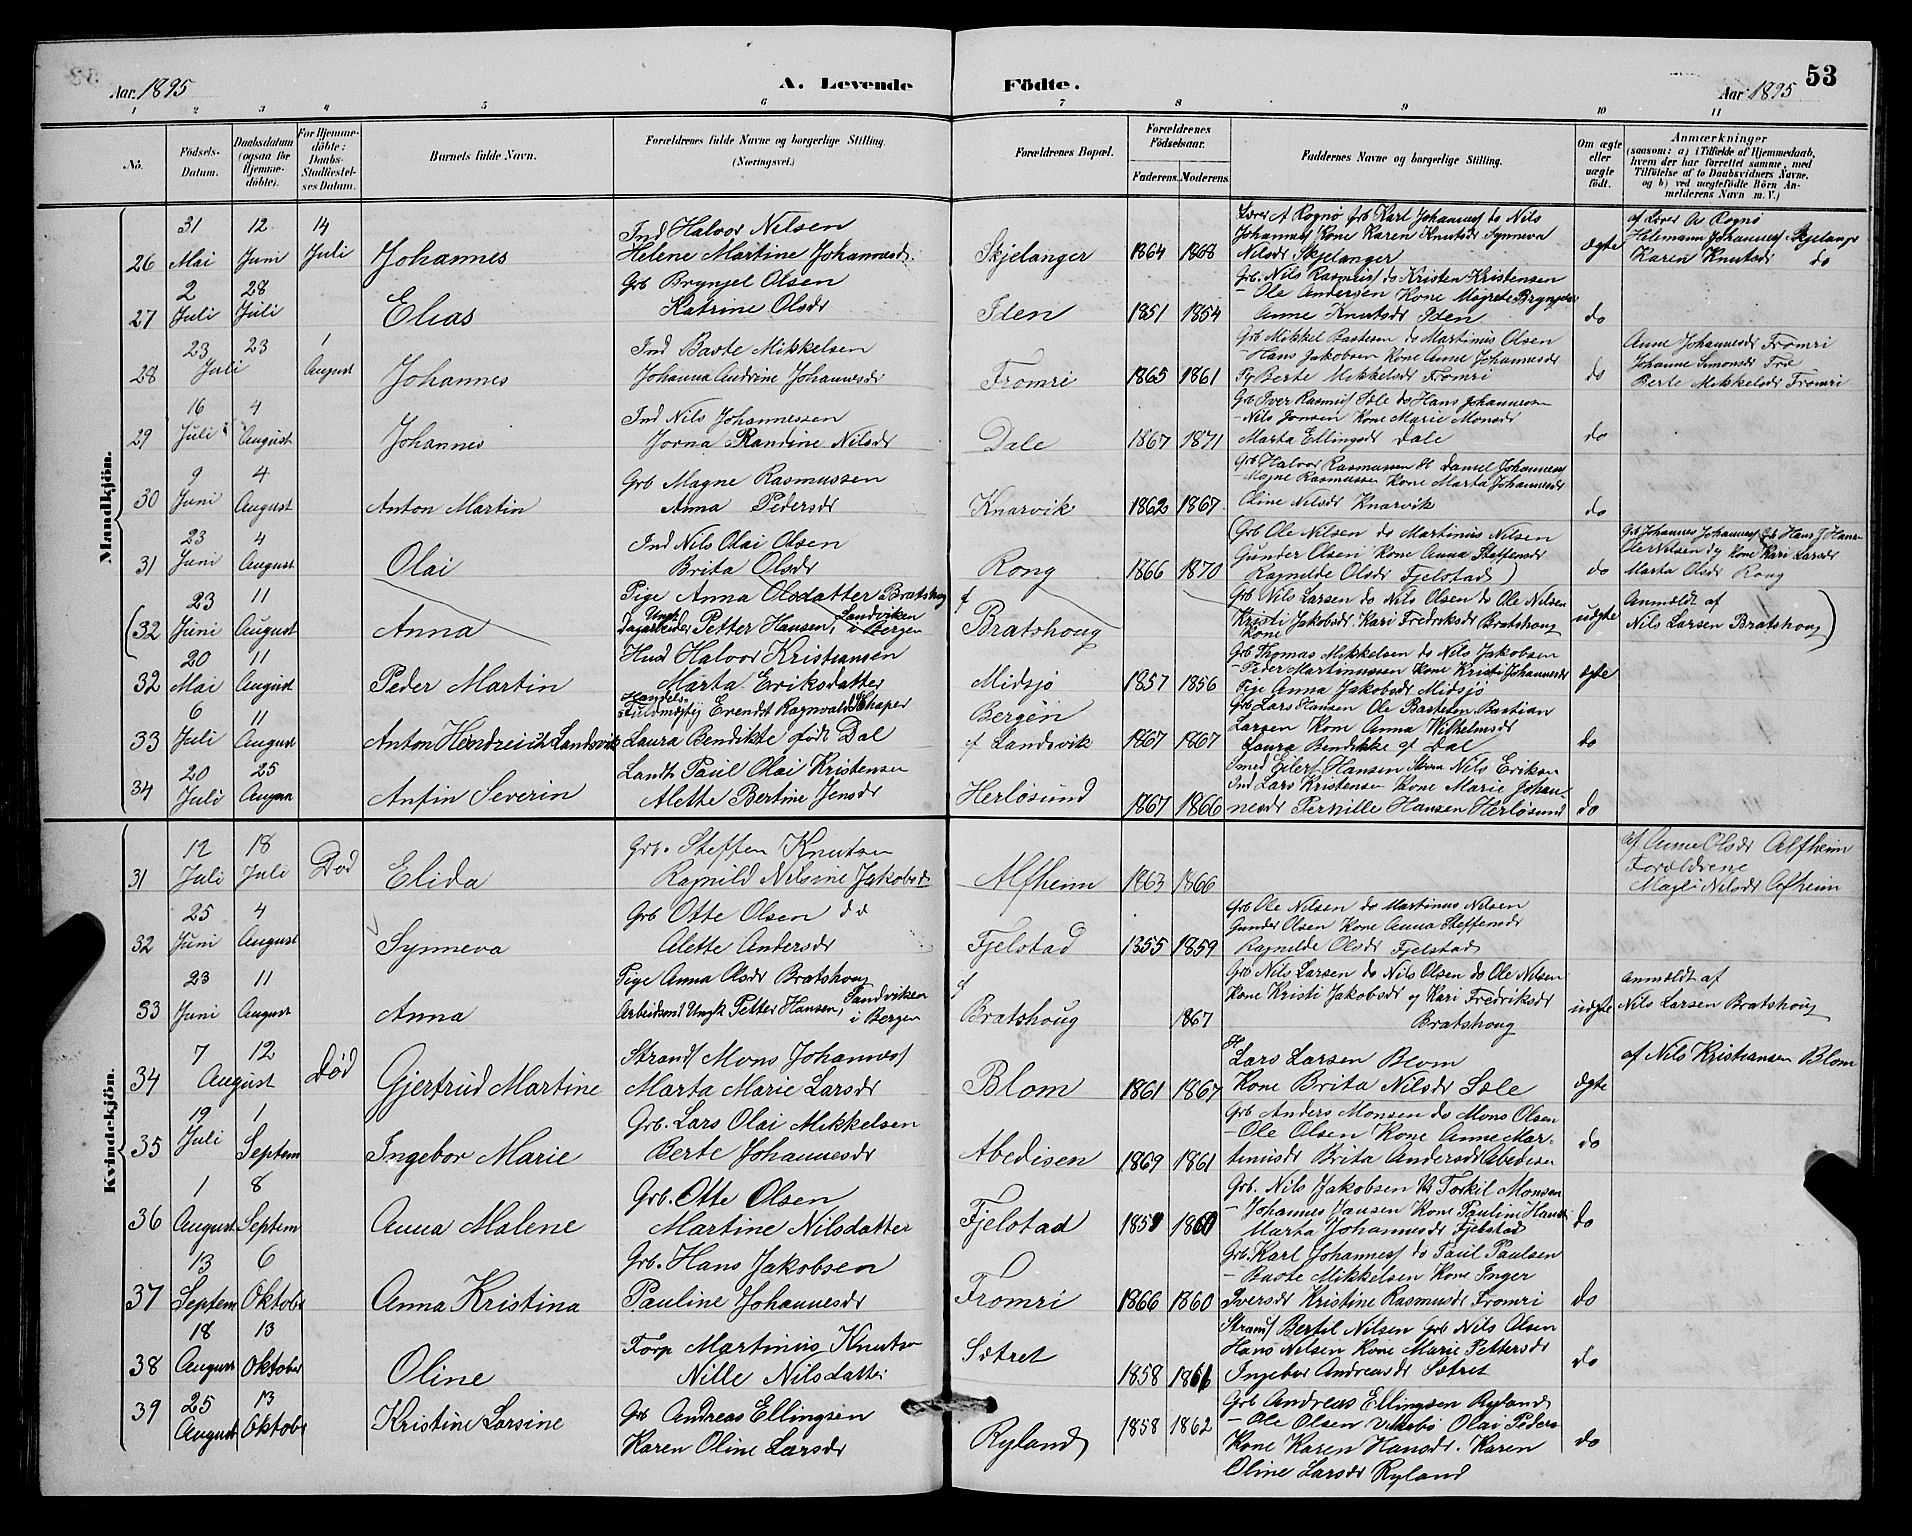 Aar 1895
A. Levende
Födte.
Aar 1895
53
1 2 3 4 5 6 7 8 9 10 11
No.
Födsels-Datum.
Daabsdatum (ogsaa for Hjemme-döbte).
For Hjemme-döbte: Daabs-Stadfæstel-ses Datum.
Barnets fulde Navn.
Forældrenes fulde Navne og borgerlige Stilling. (Næringsvei.)
Forældrenes Bopæl.
Forældrenes Födselsaar.
Faderens. Moderens.
Faddernes Navne og borgerlige Stilling.
Om ægte eller uægte födt.
Anmærkninger
(saasom: a) i Tilfælde af Hjemmedaab, hvem der har forrettet samme, med Tilföielse af to Daabsvidners Navne, og b) ved uægtefödte Börn An-melderens Navn m. V.)
Mandkjön.
26 31 Mai 12 Juni 14 Juli Johannes
Ind Halvor Nilsen
Helene Martine Johannesd.
Skjelanger 1864 1868
Lærer A Rognø Grb Karl Johannes/ do Nils
Johannes/ Kone Karen Knutsdr Synneva
Nilsdr Skjelanger
ægte
af Lærer As Rognø
Hilemann Johannes/ Skjelanger
Karen Knutsdr do
27 2 Juli 28 Juli Elias
Grb Brynjel Olsen
Katrine Olsdr
Iden 1851 1854
Grb. Nils Rasmus/ do Kristen Kristensen
- Ole Andersen Kone Magrete Brynjelsd
Anne Knutsdr Iden
do
28 23 23 Juli 1 August Johannes
Ind Baste Mikkelsen
Johanna Andrine Johannesdr
Fromri 1865 1861
Grb Mikkel Bastesen do Martinus Olsen
- Hans Jakobsen Kone Anne Johannesdr
Pg Berte Mikkelsdr Fromri
do
Anne Johannesdr Fromri
Johanne Simonsdr Frö
Berte Mikkelsdr Fromri
29 16 Juli 4 August Johannes
Ind Nils Johannessen
Jorna Randine Nilsdr
Dale 1867 1871
Grb Iver Rasmus/ Sæle do Hans Johannessen
- Nils Jonsen Kone Marie Monsdr
Marta Ellingsdr Dale
do
30 9 Juni 4 August Anton Martin
Grb Magne Rasmussen
Anna Pedersdr
Knarvik 1862 1867
Grb Halvor Rasmussen H Daniel Johannes/
- Mojne Rasmussen Kone Marta Johannesdr
Oline Nilsdr Knarvik
do
31 23 Juni 4 August Olai
Ind Nils Olai Olsen
Brita Olsdr
Rong 1866 1870
(Grb Ole Nilsen do Martinus Nilsen
Gunder Olsen Kone Anna Steffensdr
Ragnilde Olsdr Fjelstad)
do
Grb Johannes Johannes/ Grb Hans J Hansen
Ole Nilsen og Kone Kari Larsdr
Marta Olsdr Rong
(32 23 Juni 11 August Anna
Pige Anna Olsdatter Bratshoug
Ungk. Dagarbeider Petter Hansen, Sandviken i Bergen
f Bratshoug
Grb Nils Larsen do Nils Olsen do Ole Nilsen
Kristi Jakobsdr Kari Fredriksdr Bratshoug
Kone
uægte
Anmeldt af
Nils Larsen Bratshoug)
32 20 Mai 11 August Peder Martin
Husm Halvor Kristiansen
Marta Eriksdatter
Midsjø 1857 1856
Grb Thomas Mikkelsen do Nils Jakobsen
- Peder Martinussen Kone Kristi Johannesdr
Pige Anna Jakobsdr Midsjø
ægte
33 6 Juli 11 August Anton Hendreich Landsvik
Handels-Fuldmægtig Evendt Ragnvald Schaper
Laura Bendikte født Dal
Bergen
f Landsvik 1867 1867
Grb Lars Hansen Ole Bastesen Bastian
Larsen Kone Anna Wilhelmsdr
Laura Bendikke gf Dal
do
34 20 Juli 25 August Anfin Severin
Landh Paul Olai Kristensen
Alette Bertine Jensdr
Herløsund 1867 1866
Smed Eilert Hansen Nils Eriksen
Ind Lars Kristensen Kone Marie Johan-
nesdr Pernille Hansen Herløsund
do
Kvindekjön.
31 12 Juli 18 Juli Død Elida
Grb. Steffen Knutsen
Ragnild Nilsine Jakobsd
Alfheim 1863 1866
af Anne Olsdr Alfheim
Forældrene
Magli Nilsdr Alfheim
32 25 Juni 4 August Synneva
Grb Otte Olsen do
Alette Andersdr
Fjelstad 1855 1859
Grb Ole Nilsen do Martinus Nilsen
Gunder Olsen Kone Anna Steffensdr
Ragnilde Olsdr Fjelstad
33 23 Juni 11 August Anna
Pige Anna Olsdr Bratshoug
Arbeidsmd Ungk Petter Hansen, Sandviken i Bergen
f Bratshoug 1867
Grb Nils Larsen do Nils Olsen do Ole Nilsen
Kone Kristi Jakobsdr og Kari Fredriksdr
Bratshoug
uægte
anmeldt af
Nils Larsen Bratshoug
34 7 12 August Død Gjertrud Martine
Strands/ Mons Johannes/
Marta Marie Larsdr
Blom 1861 1867
Lars Larsen Blom
Kone Brita Nilsdr Sæle
Ægte
af Nils Kristiansen Blom
35 19 Juli 1 Septem Ingebor Marie
Grb. Lars Olai Mikkelsen
Berte Johannesdr
Abedisen 1869 1861
Grb Anders Monsen do Mons Olsen
- Ole Olsen Kone Anne Mar-
tinusdr Brita Andersdr Abedisen
do
36 1 August 8 Septem Anna Malene
Grb. Otte Olsen
Martine Nilsdatter
Fjelstad 1857 1860
Grb. Nils Jakobsen Torkil Monsen
- Johannes Jansen Kone Pauline Hansd
Marta Johannesdr Fjelstad
do
37 13 Septem 6 Oktober Anna Kristina
Grb. Hans Jakobsen
Pauline Johannesdr
Fromri 1866 1860
Grb. Karl Johannes/ do Paul Paulsen
- Baste Mikkelsen Kone Inger
Iversdr Kristine Rasmusdr Fromri
do
38 18 August 13 Oktober Oline
Forp Martinus Knutsen
Nille Nilsdatter
Sætret 1858 1861
Strands/ Bertil Nilsen Grb Nils Olsen
Hans Nilsen Kone Marie Pettersdr
Ingebor Andreasdr Sætret
do
39 25 August 13 Oktober Kristine Larsine
Grb Andreas Ellingsen
Karen Oline Larsdr
Ryland 1858 1862
Grb Andreas Ellingsen Ryland
- Ole Olsen Vikebø Olai Peders
Kone Karen Hansdr. Karen
Oline Larsdr Ryland
do